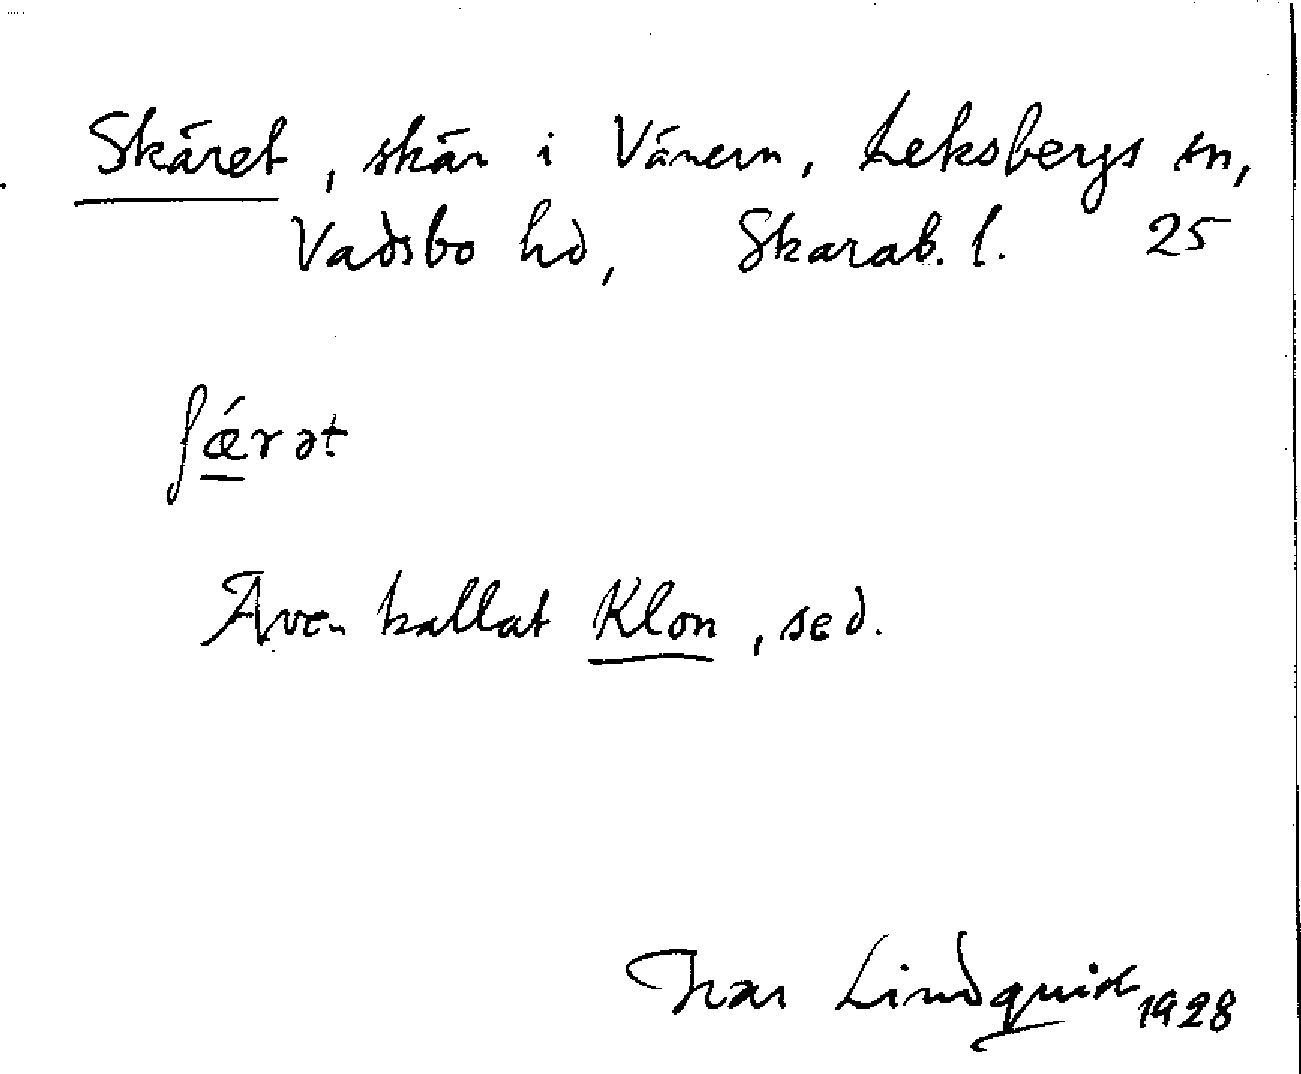 Skäret, skär i Vänern, Leksbergs sn,
Vadsbo hd, Skarab. l. 25
ʃǽrət
Även kallat Klon, se d.
Ivar Lindquist 1928